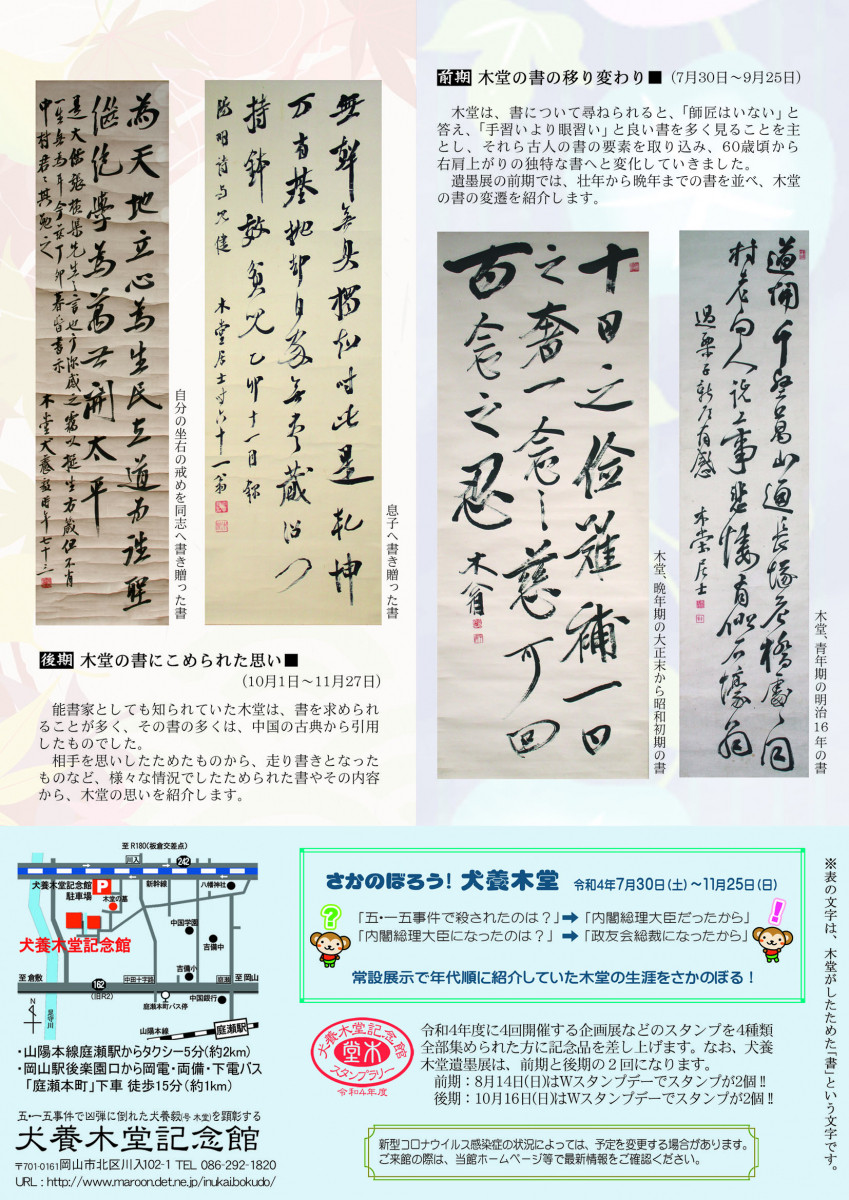 前期 木堂の書の移り変わり■ (7月30日～9月25日)
木堂は、書について尋ねられると、「師匠はいない」と
答え、「手習いより眼習い」と良い書を多く見ることを主
とし、それら古人の書の要素を取り込み、60歳頃から
右肩上がりの独特な書へと変化していきました。
遺墨展の前期では、壮年から晩年までの書を並べ、木堂
の書の変遷を紹介します。
為天地立心為生民立道為往聖
継絶學為萬世開太平
木堂犬養毅時年七十三
自分の坐右の戒めを同志へ書き贈った書
無聲無臭獨知時此是乾坤
万有基抛却自家無尽蔵沿門
持鉢效貧児 乙卯十一月録
陽明詩与児健 木堂居士時六十一翁
息子へ書き贈った書
十日之儉難補一日
之奢一念之慈可回
百念之忍 木翁
木堂、晩年期の大正末から昭和初期の書
木堂居士
木堂、青年期の明治16年の書
後期 木堂の書にこめられた思い■
(10月1日～11月27日)
能書家としても知られていた木堂は、書を求められ
ることが多く、その書の多くは、中国の古典から引用
したものでした。
相手を思いしたためたものから、走り書きとなった
ものなど、様々な情況でしたためられた書やその内容
から、木堂の思いを紹介します。
至R180(板倉交差点)
川入
242
犬養木堂記念館
駐車場
P
新幹線
八幡神社
木堂の墓
中国学園
犬養木堂記念館
吉備中
吉備小
至 倉敷
162
(旧R2)
中田十字路
庭瀬
至 岡山
中国銀行
庭瀬本町バス停
N
足守川
山陽本線
庭瀬駅
・山陽本線庭瀬駅からタクシー5分(約2km)
・岡山駅後楽園口から岡電・両備・下電バス
「庭瀬本町」下車 徒歩15分(約1km)
五・一五事件で凶弾に倒れた犬養毅(号 木堂)を顕彰する
犬養木堂記念館
〒701-0161岡山市北区川入102-1 TEL 086-292-1820
URL : http://www.maroon.det.ne.jp/inukaibokudo/
さかのぼろう! 犬養木堂 令和4年7月30日(土)～11月25日(日)
?
「五・一五事件で殺されたのは?」➡「内閣総理大臣だったから」
「内閣総理大臣になったのは?」➡「政友会総裁になったから」
!
常設展示で年代順に紹介していた木堂の生涯をさかのぼる!
犬養木堂記念館
木堂
スタンプラリー
令和4年度
令和4年度に4回開催する企画展などのスタンプを4種類
全部集められた方に記念品を差し上げます。なお、犬養
木堂遺墨展は、前期と後期の2回になります。
前期：8月14日(日)はWスタンプデーでスタンプが2個!!
後期：10月16日(日)はWスタンプデーでスタンプが2個!!
新型コロナウイルス感染症の状況によっては、予定を変更する場合があります。
ご来館の際は、当館ホームページ等で最新情報をご確認ください。
※表の文字は、木堂がしたためた『書』という文字です。